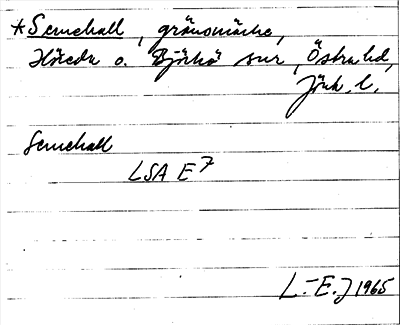 *Semehall, gränsmärke,
Höreda o. Björkö snr, Östra hd,
Jönk. l.
Semehall
LSA E7
L.-E.J 1965